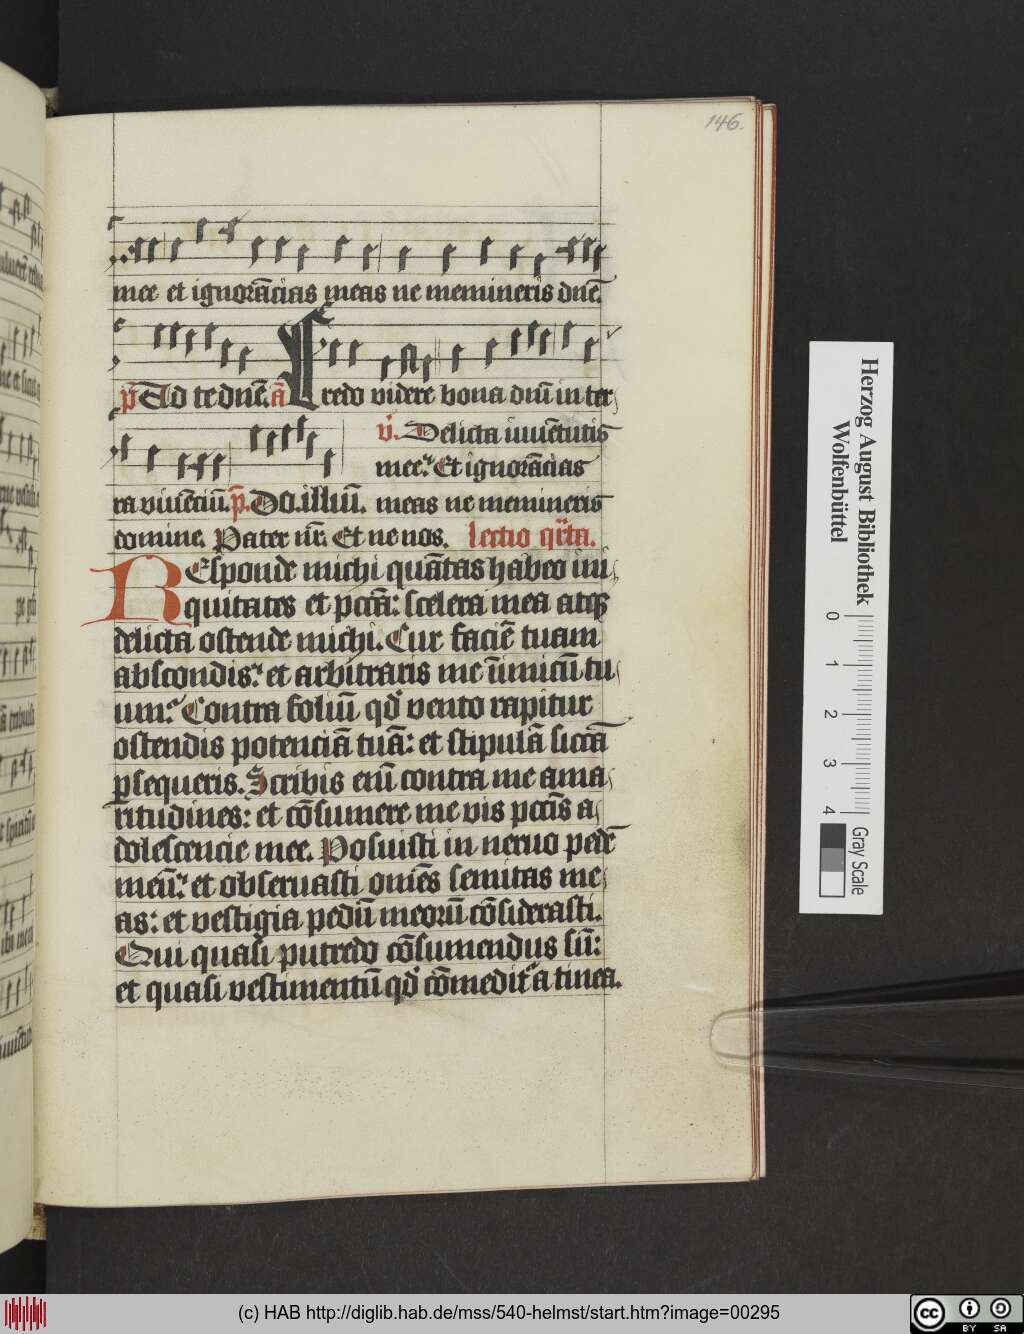 146.
mee et ignorācias meas ne memineris dnē.
p̄s Ad te dnē. a᷑ Credo videre bona dnī in ter
v̄. Delicta iuuētutis
mee. Et ignorācias
ra viuēciū. p̄. Do. illiū. meas ne memineris
domine. Pater nr̄. Et ne nos. lectio qr̄ta.
REsponde michi quātas habeo ini
quitates et pctā: scelera mea atqȝ
delicta ostende michi. Cur faciē tuam
abscondis: et arbitraris me īimicū tu
um. Contra foliū qd̛ vento rapitur
ostendis potenciā tuā: et stipulā siccā
ꝑsequeris. Scribis enī contra me ama
ritudines: et cōsumere me vis pccīs a
dolescencie mee. Posuisti in neruo pedē
meū: et obseruasti om̄es semitas me
as: et vestigia pedū meorū cōsiderasti.
Qui quasi putredo cōsumendus sū:
et quasi vestimentū qd̛ cōmedit̛ a tinea.
Herzog August Bibliothek
Wolfenbüttel
0 1 2 3 4
Gray Scale
(c) HAB http://diglib.hab.de/mss/540-helmst/start.htm?image=00295
cc BY SA